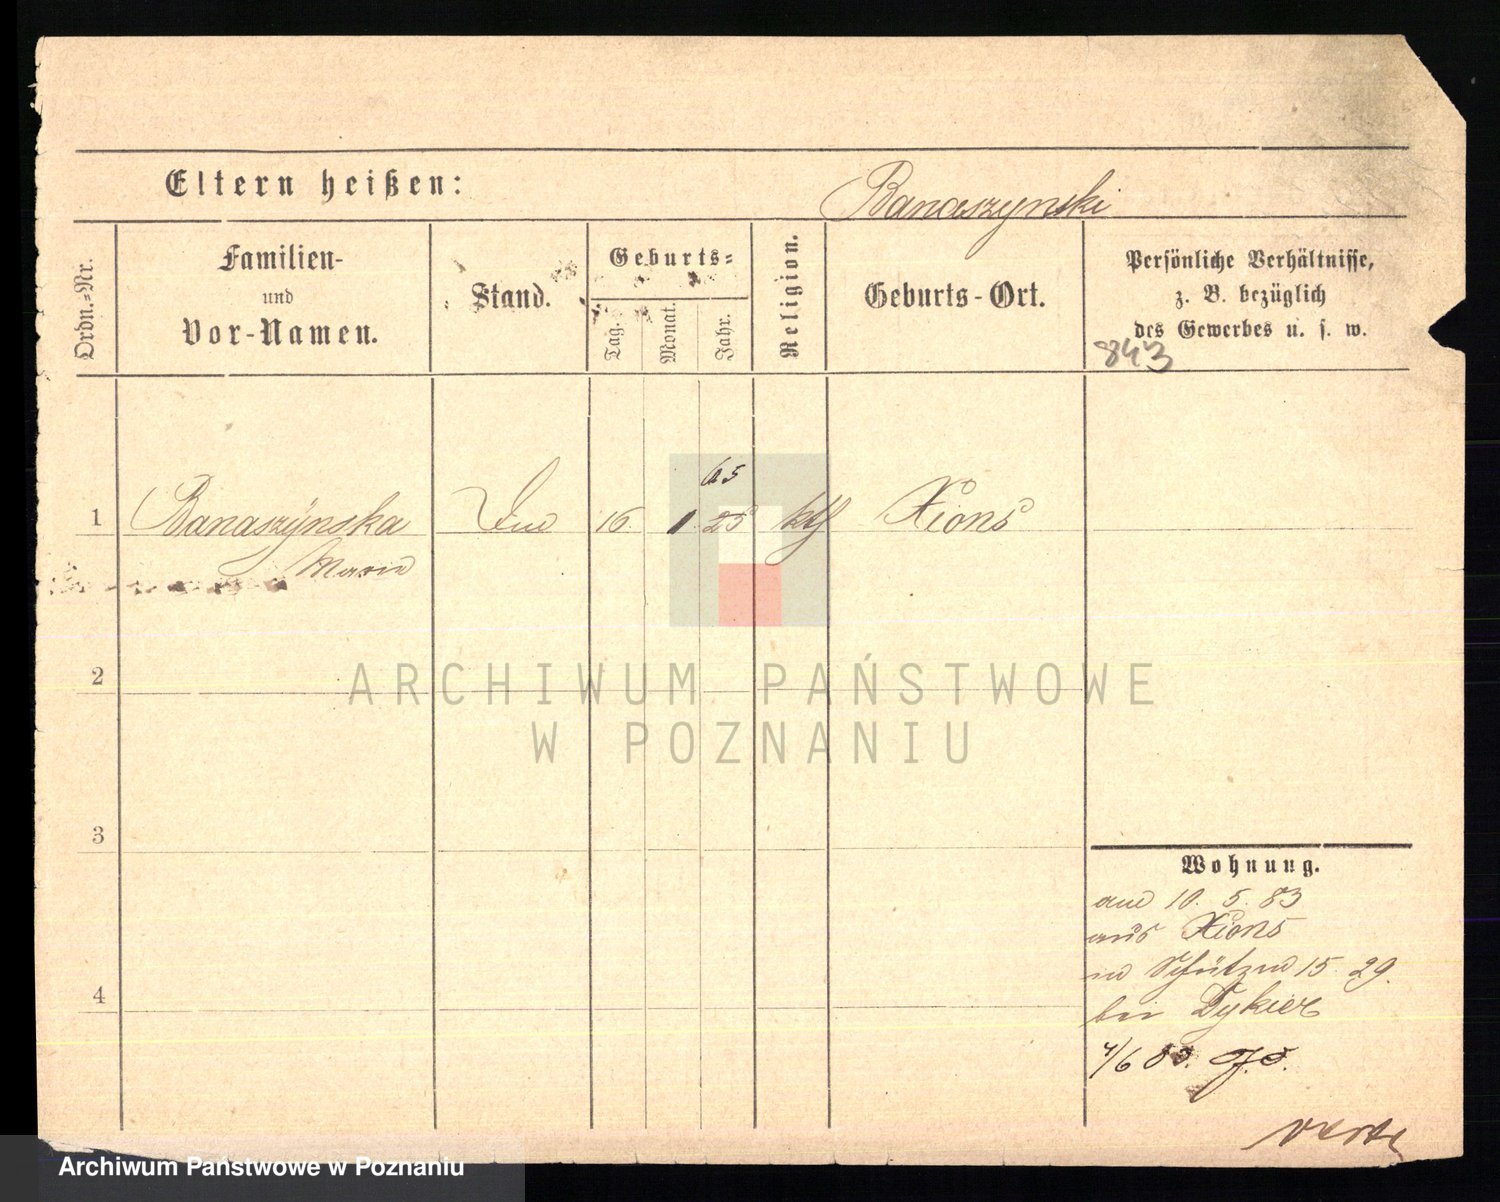 Eltern heißen:
Banaszynski
Ordn.-Nr.
Familien-
und
Vor-Namen.
Stand.
Geburts-
Tag.
Monat.
Jahr.
Religion.
Geburts-Ort.
Persönliche Verhältnisse,
z. B. bezüglich
des Gewerbes u. s. w.
843
65
1 Banaszynska 16. 1. 25 kth Xions
Maria
2
ARCHIWUM PAŃSTWOWE
W POZNANIU
3
4
Wohnung.
10. 5. 83
aus Xions
Schützen 15. 29.
bei Dykier
4/6 83.
Archiwum Państwowe w Poznaniu